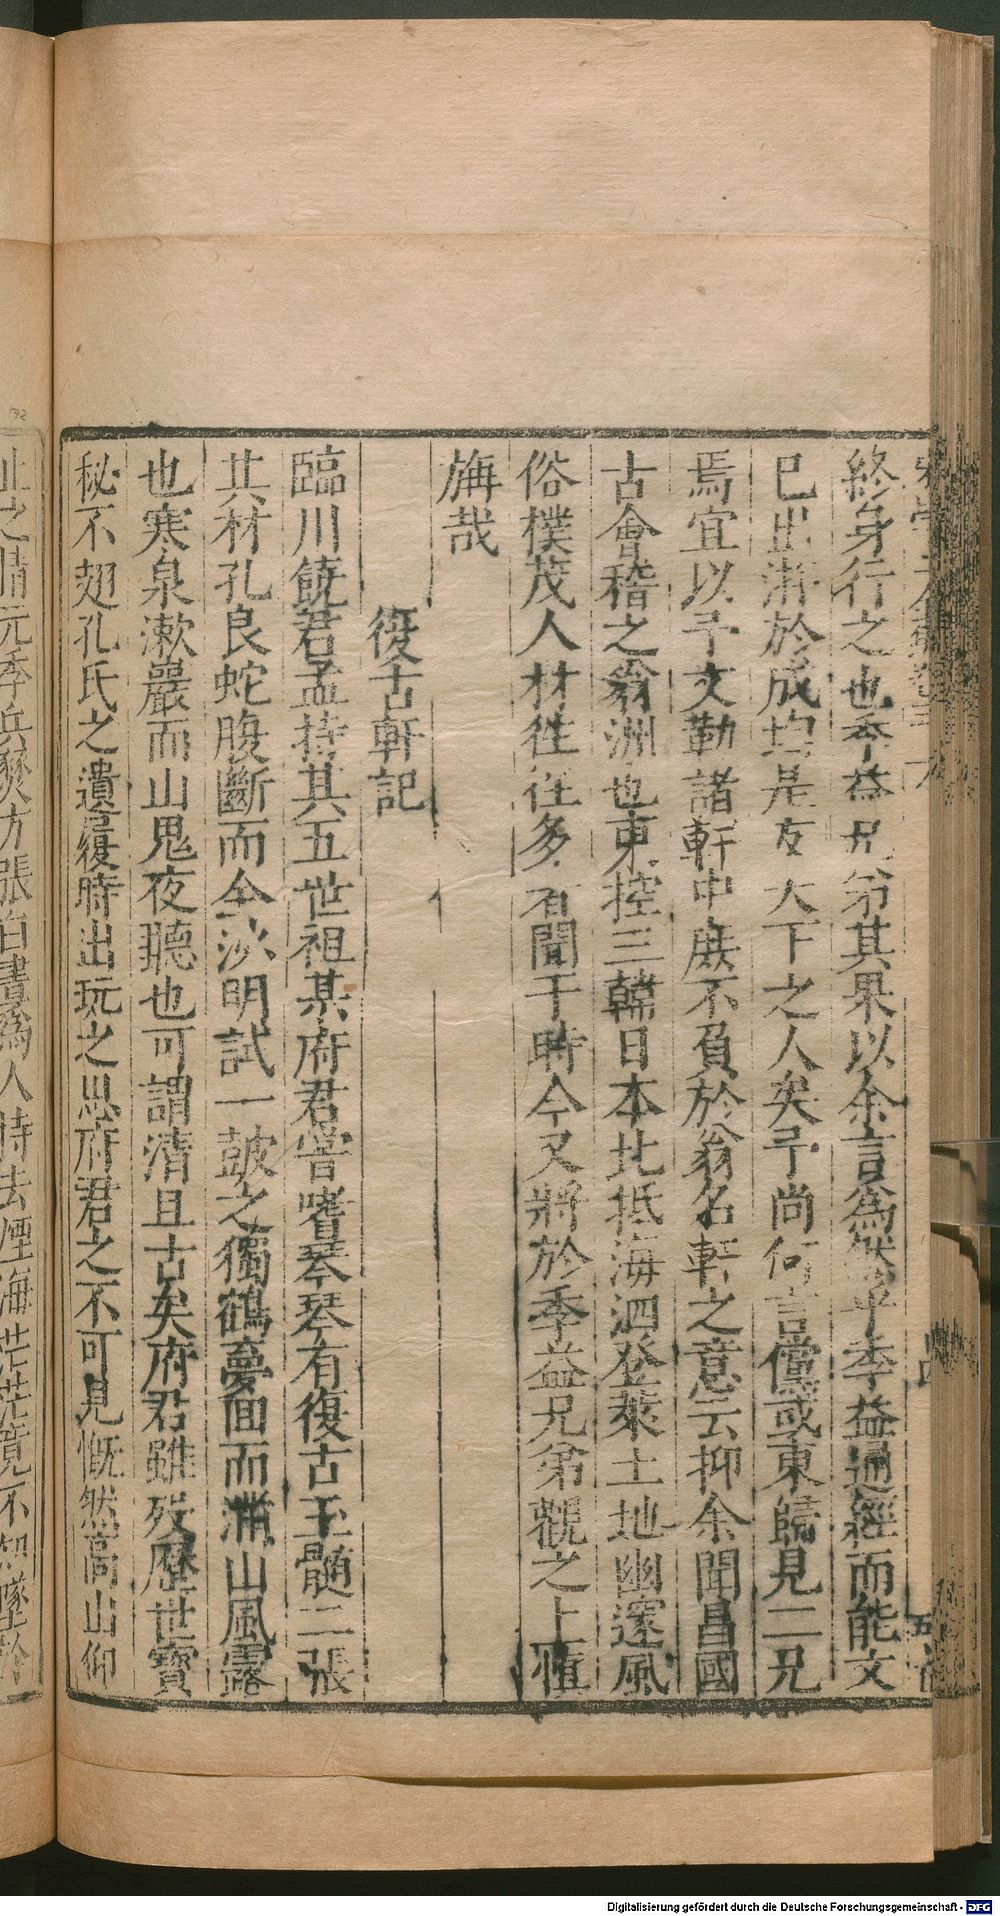 終身行之也季益兄弟其果以余言爲然乎季益通經而能文
已出游於成均是友天下之人矣予尚何言儻或東歸見二兄
焉宜以予文勒諸軒中庶不負於翁名軒之意云抑余聞昌國
古會稽之翁洲也東控三韓日本北抵海泗登萊土地幽邃風
俗樸茂人材徃徃多有聞于時今又將於季益兄弟觀之上愼
旃哉
復古軒記
臨川饒君孟持其五世祖某府君嘗嗜琴琴有復古玉髓二張
其材孔良蛇腹斷而金沙明試一鼓之獨鶴夢回而滿山風露
也寒泉漱巖而山鬼夜聽也可謂清且古矣府君雖歿歷世寶
秘不翅孔氏之遺履時出玩之思府君之不可見慨然高山仰
止之情元季兵燹方張白晝爲人持去煙海茫茫竟不知墜於
Digitalisierung gefördert durch die Deutsche Forschungsgemeinschaft - DFG